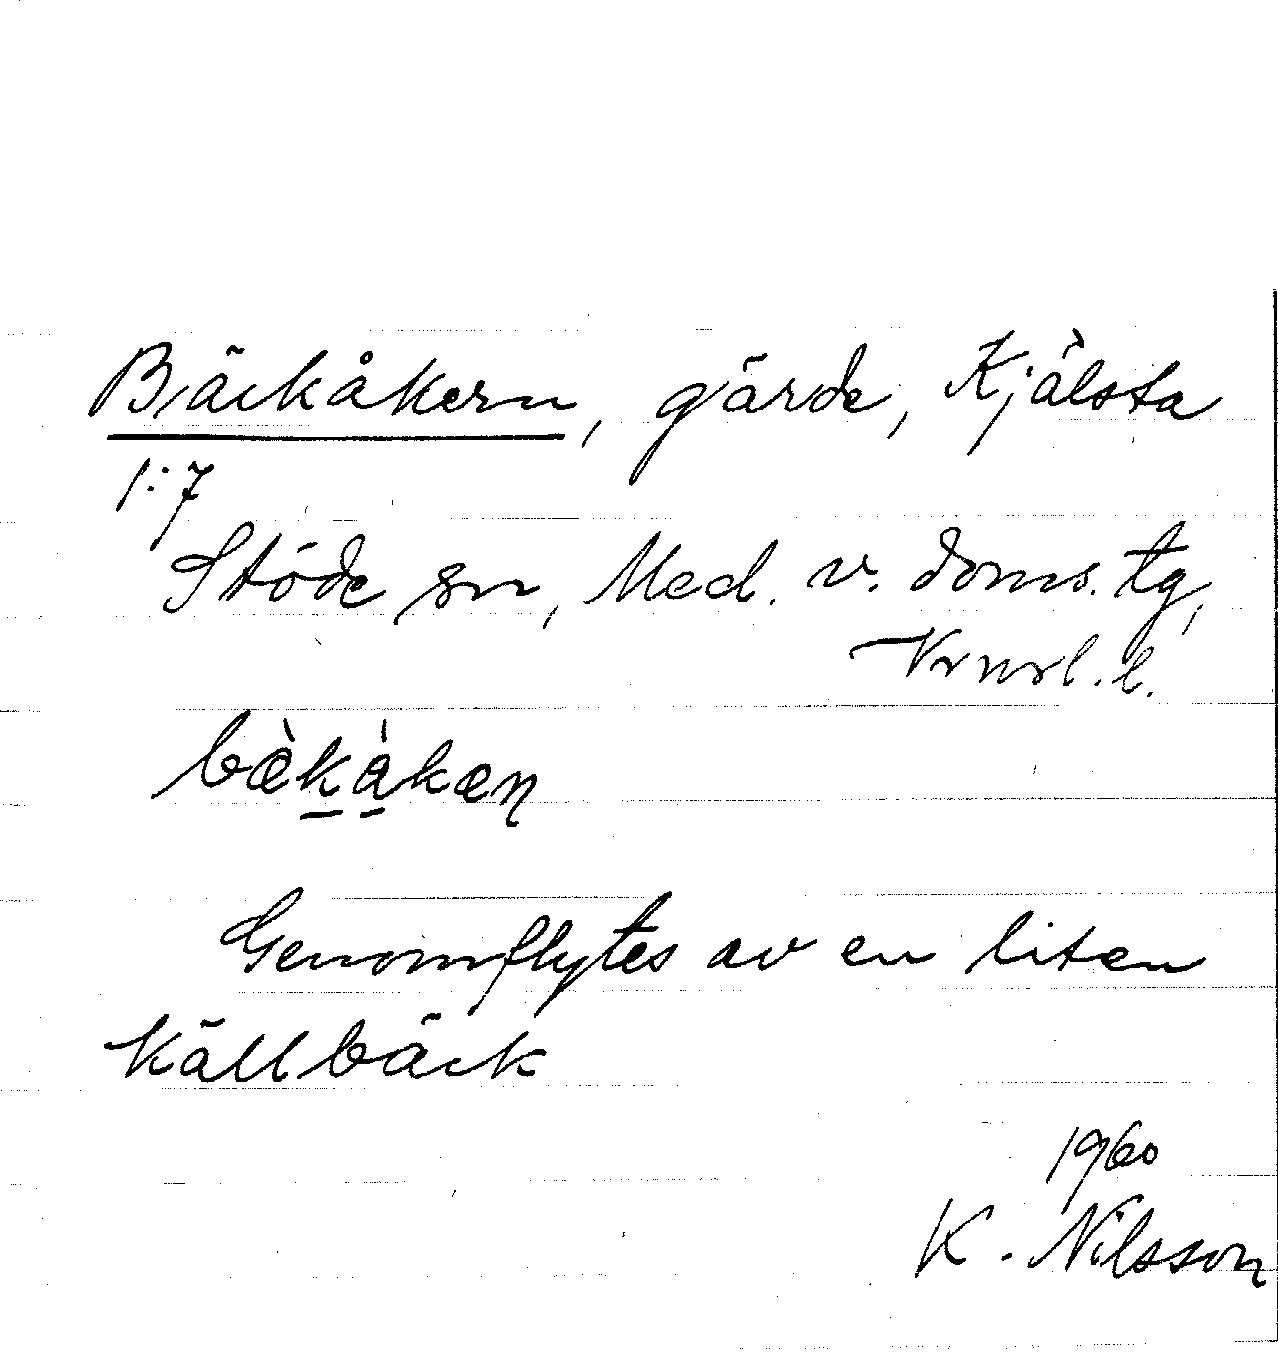 Bäckåkern, gärde, Kjälsta
1:7
Stöde sn, Med. v. doms. tg,
Vrnrl. l.
bæ̀kàkæn
Genomflytes av en liten
källbäck
1960
K. Nilsson